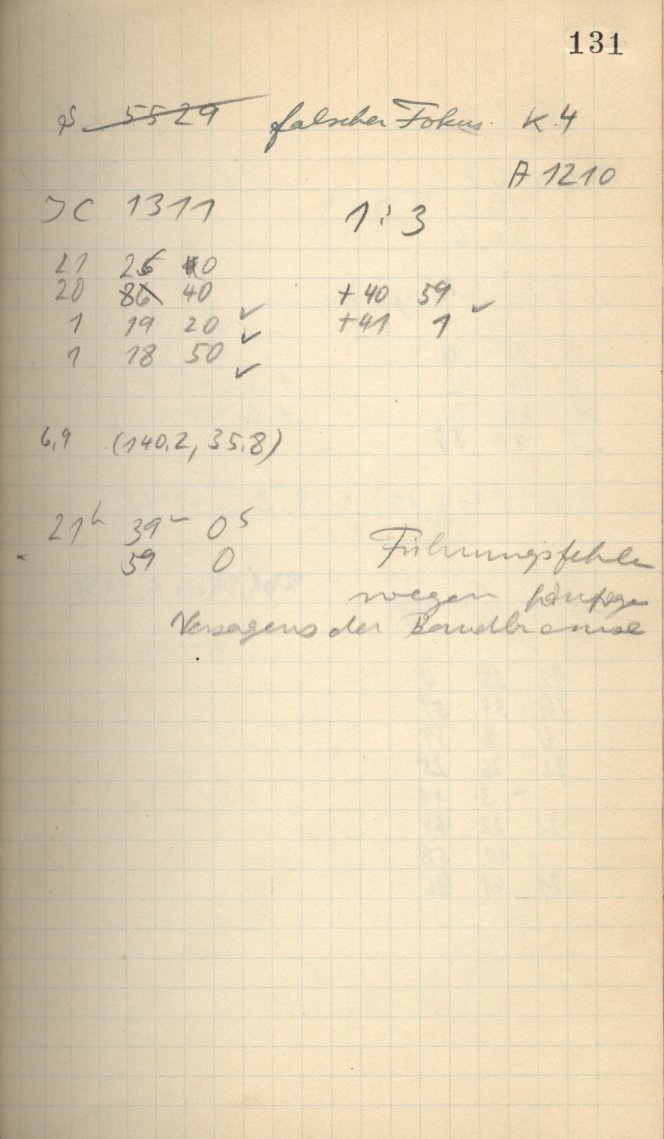 131
S 5529 falscher Fokus K.4
A 1210
JC 1311 1:3
21 25 40
20 86 40 +40 59 ✓
1 19 20 ✓ +41 1
1 18 50 ✓
6,9 (140.2, 35.8)
21h 39m 0s
59 0 Führungsfehler
wegen
Versagens der Bandbremse